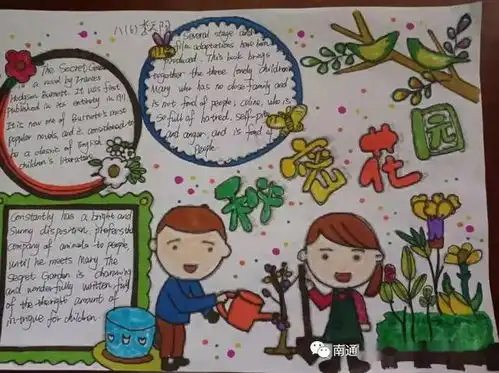 八(6) 李天阳
The Secret Garden
is a novel by Frances
Hodgson Burnett. It was first
published in its entirety in 1911
It is now one of Burnett's most
popular novels, and is considered to
be a classic of English
children's literature
Several stage and
film adaptations have been
produced. This book brings
together the three lonely children
Mary who has no close family and
is not fond of people, coline, who is
so full of hatred, self-pity
and anger, and is fond of
People.
秘密花园
Constantly has a bright and
Sunny disposition, prefers the
company of animals to people,
until he meets Mary. The
secret Garden is charming
and wonderfully written full
of the right amount of
intrigue for children.
南通